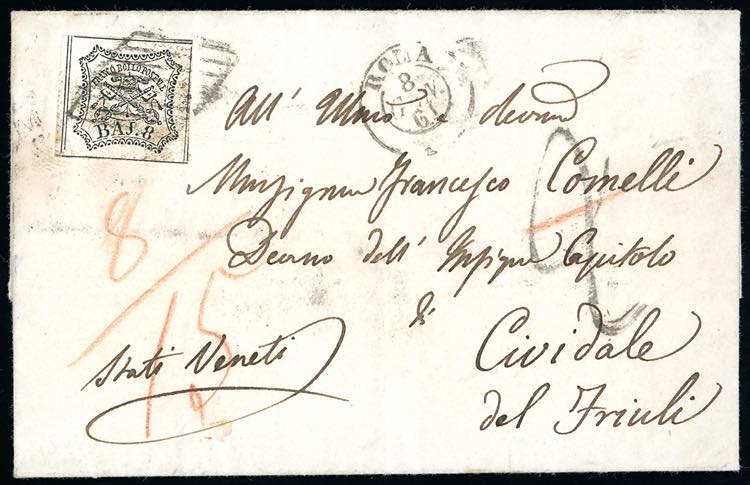 FRANCO BOLLO POSTALE
BAJ. 8
ROMA
8
6
All' Illmo e
Monsignor Francesco Comelli
Decano dell' Insigne Capitolo
di
Cividale
del Friuli
Stati Veneti
8/15